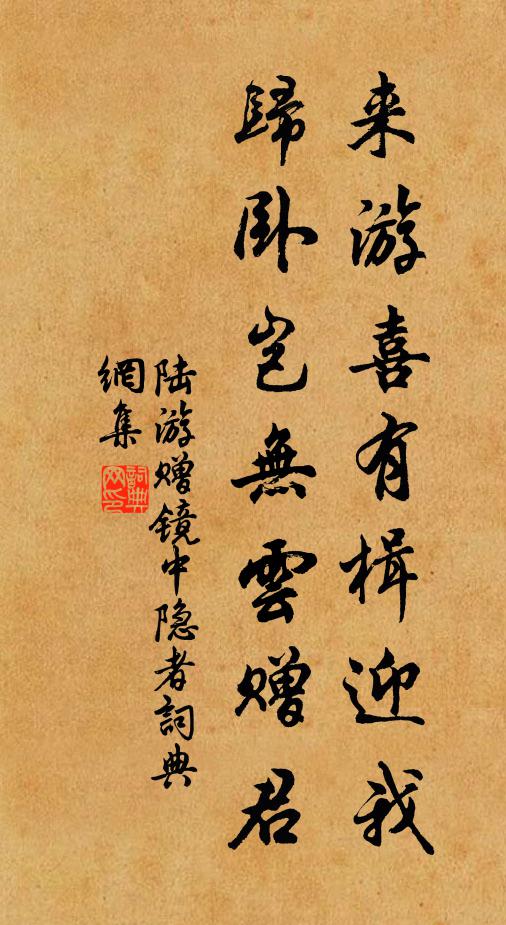 来游喜有楫迎我
歸卧岂無雲赠君
陆游赠镜中隐者詞典
網集
詞典
网印